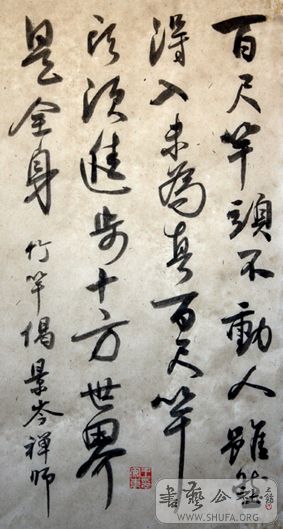 百尺竿頭不動人雖然
得入未為真百尺竿
頭須進步十方世界
是全身 竹竿偈景岑禪師
書藝公社
WWW.SHUFA.ORG